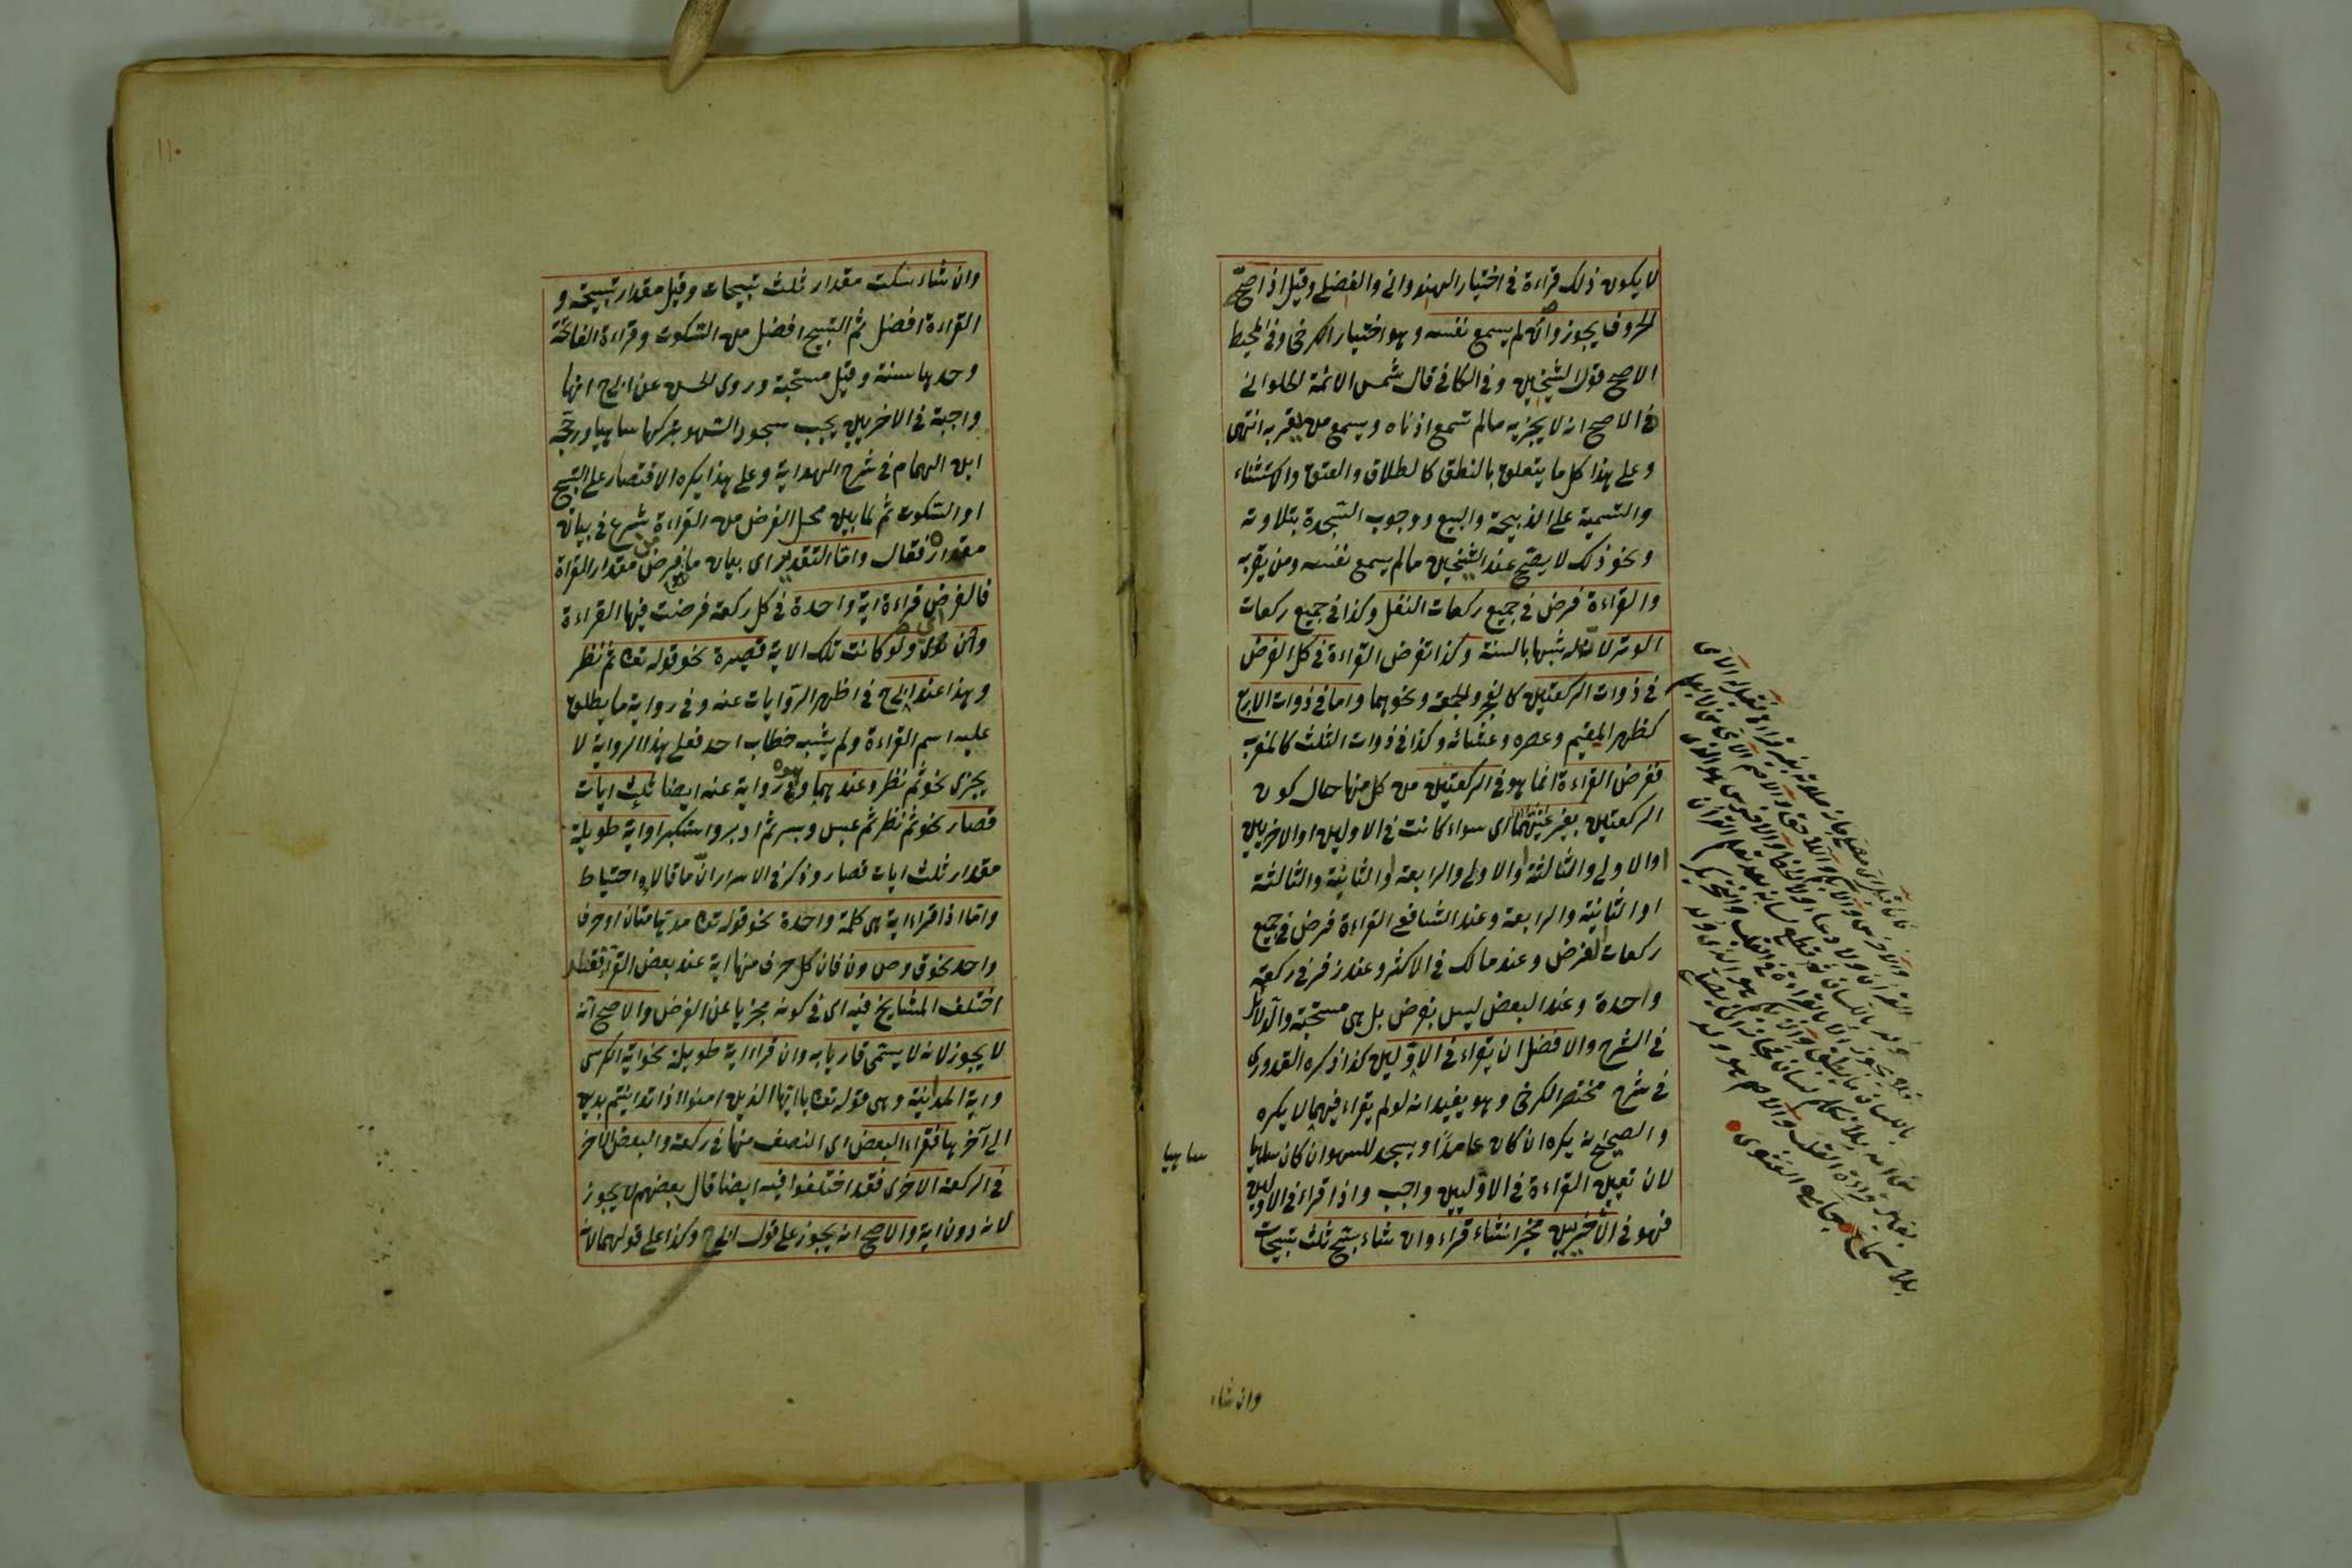 لا يكون ذلك قراءة في اختيار الهندواني والفضلي وقيل اذا صحّح
الحروف يجوز وان لم يسمع نفسه وهو اختيار الكرخي وفي المحيط
الاصح قول الشيخين وفي الكافي قال شمس الائمة الحلواني
الاصح انه لا يجزيه ما لم تسمع اذناه ويسمع من يقربه انتهى
وعلى هذا كل ما يتعلق بالنطق كالطلاق والعتق والاستثناء
والتسمية على الذبيحة والبيع ووجوب السّجدة بتلاوته
ونحو ذلك لا يصحّ عند الشيخين ما لم يسمع نفسه ومن يقربه
والقراءة فرض في جميع ركعات النفل وكذا في جميع ركعات
الوتر لان له شبها بالسنة وكذا تفرض القراءة في كل الفرض
في ذوات الركعتين كالفجر والجمعة ونحوهما واما في ذوات الاربع
كظهر المقيم وعصره وعشائه وكذا في ذوات الثلث كالمغرب
ففرض القراءة انما هو في الركعتين من كل منها حال كون
الركعتين بغير عينهما اى سواء كانت في الاوليين او الاخريين
او الاولى والثالثة او الاولى والرابعة او الثانية والثالثة
او الثانية والرابعة وعند الشافعي القراءة فرض في جميع
ركعات الفرض وعند مالك في الاكثر وعند زفر في ركعة
واحدة وعند البعض ليس بفرض بل هى مستحبة والدلائل
في الشرح والافضل ان يقراء في الاوّليين كذا ذكره القدورى
في شرح مختصر الكرخي وهو يفيد انه لو لم يقراء فيهما لا يكره
والصحيح انه يكره ان كان عامدًا ويسجد للسهو ان كان ساهيا
ساهيا
لان تعيين القراءة في الاوّليين واجب واذا قراء في الاوليين
فهو في الاخيرين مخير ان شاء قراء وان شاء سبّح ثلث تسبيحات
وان شاء
وان شاء سكت مقدار ثلث تسبيحات وقيل مقدار تسبيحة و
القراءة افضل ثم التسبيح افضل من السّكوت وقراءة الفاتحة
وحدها سنة وقيل مستحبة وروى الحسن عن ابى ح انها
واجبة في الاخريين يجب سجود السّهو بتركها ساهيا ورجّحه
ابن الهمام في شرح الهداية وعلى هذا يكره الاقتصار على التسبيح
او السّكوت ثم لما بين محل الفرض من القراءة شرع في بيان
مقداره فقال وامّا التقدير اى بيان ما فرض من مقدار القراءة
فالفرض قراءة اية واحدة في كل ركعة فرضت فيها القراءة
وان ولو كانت تلك الاية قصيرة نحو قوله تعا ثم نظر
وهذا عند ابى ح في اظهر الرّوايات عنه وفي رواية ما يطلق
عليه اسم القراءة ولم يشبه خطاب احد فعلى هذا الرواية لا
يجزى نحو ثم نظر وعندهما وهو رواية عنه ايضا ثلث ايات
قصار نحو ثم نظر ثم عبس وبسر ثم ادبر واستكبر او اية طويلة
مقدار ثلث ايات قصار وذكر في الاسرار انّ ما قالاه احتياط
وامّا اذا قراء اية هى كلمة واحدة نحو قوله تعا مدهامتان او حرف
واحد نحو ق وص ون فان كل حرف منها اية عند بعض القرّاء فقد
اختلف المشايخ فيه اى في كونه مجزيا عن الفرض والاصح انه
لا يجوز لانه لا يسمّى قاريا به وان قراء اية طويلة نحو اية الكرسى
واية المداينة وهى قوله تعا يا ايها الذين امنوا اذا تداينتم بدين
الى آخرها فقراء البعض اى النصف منها في ركعة والبعض الاخر
في الركعة الاخرى فقد اختلفوا فيه ايضا قال بعضهم لا يجوز
لانه دون اية والاصح انه يجوز على قول ابى ح وكذا على قولهما لان